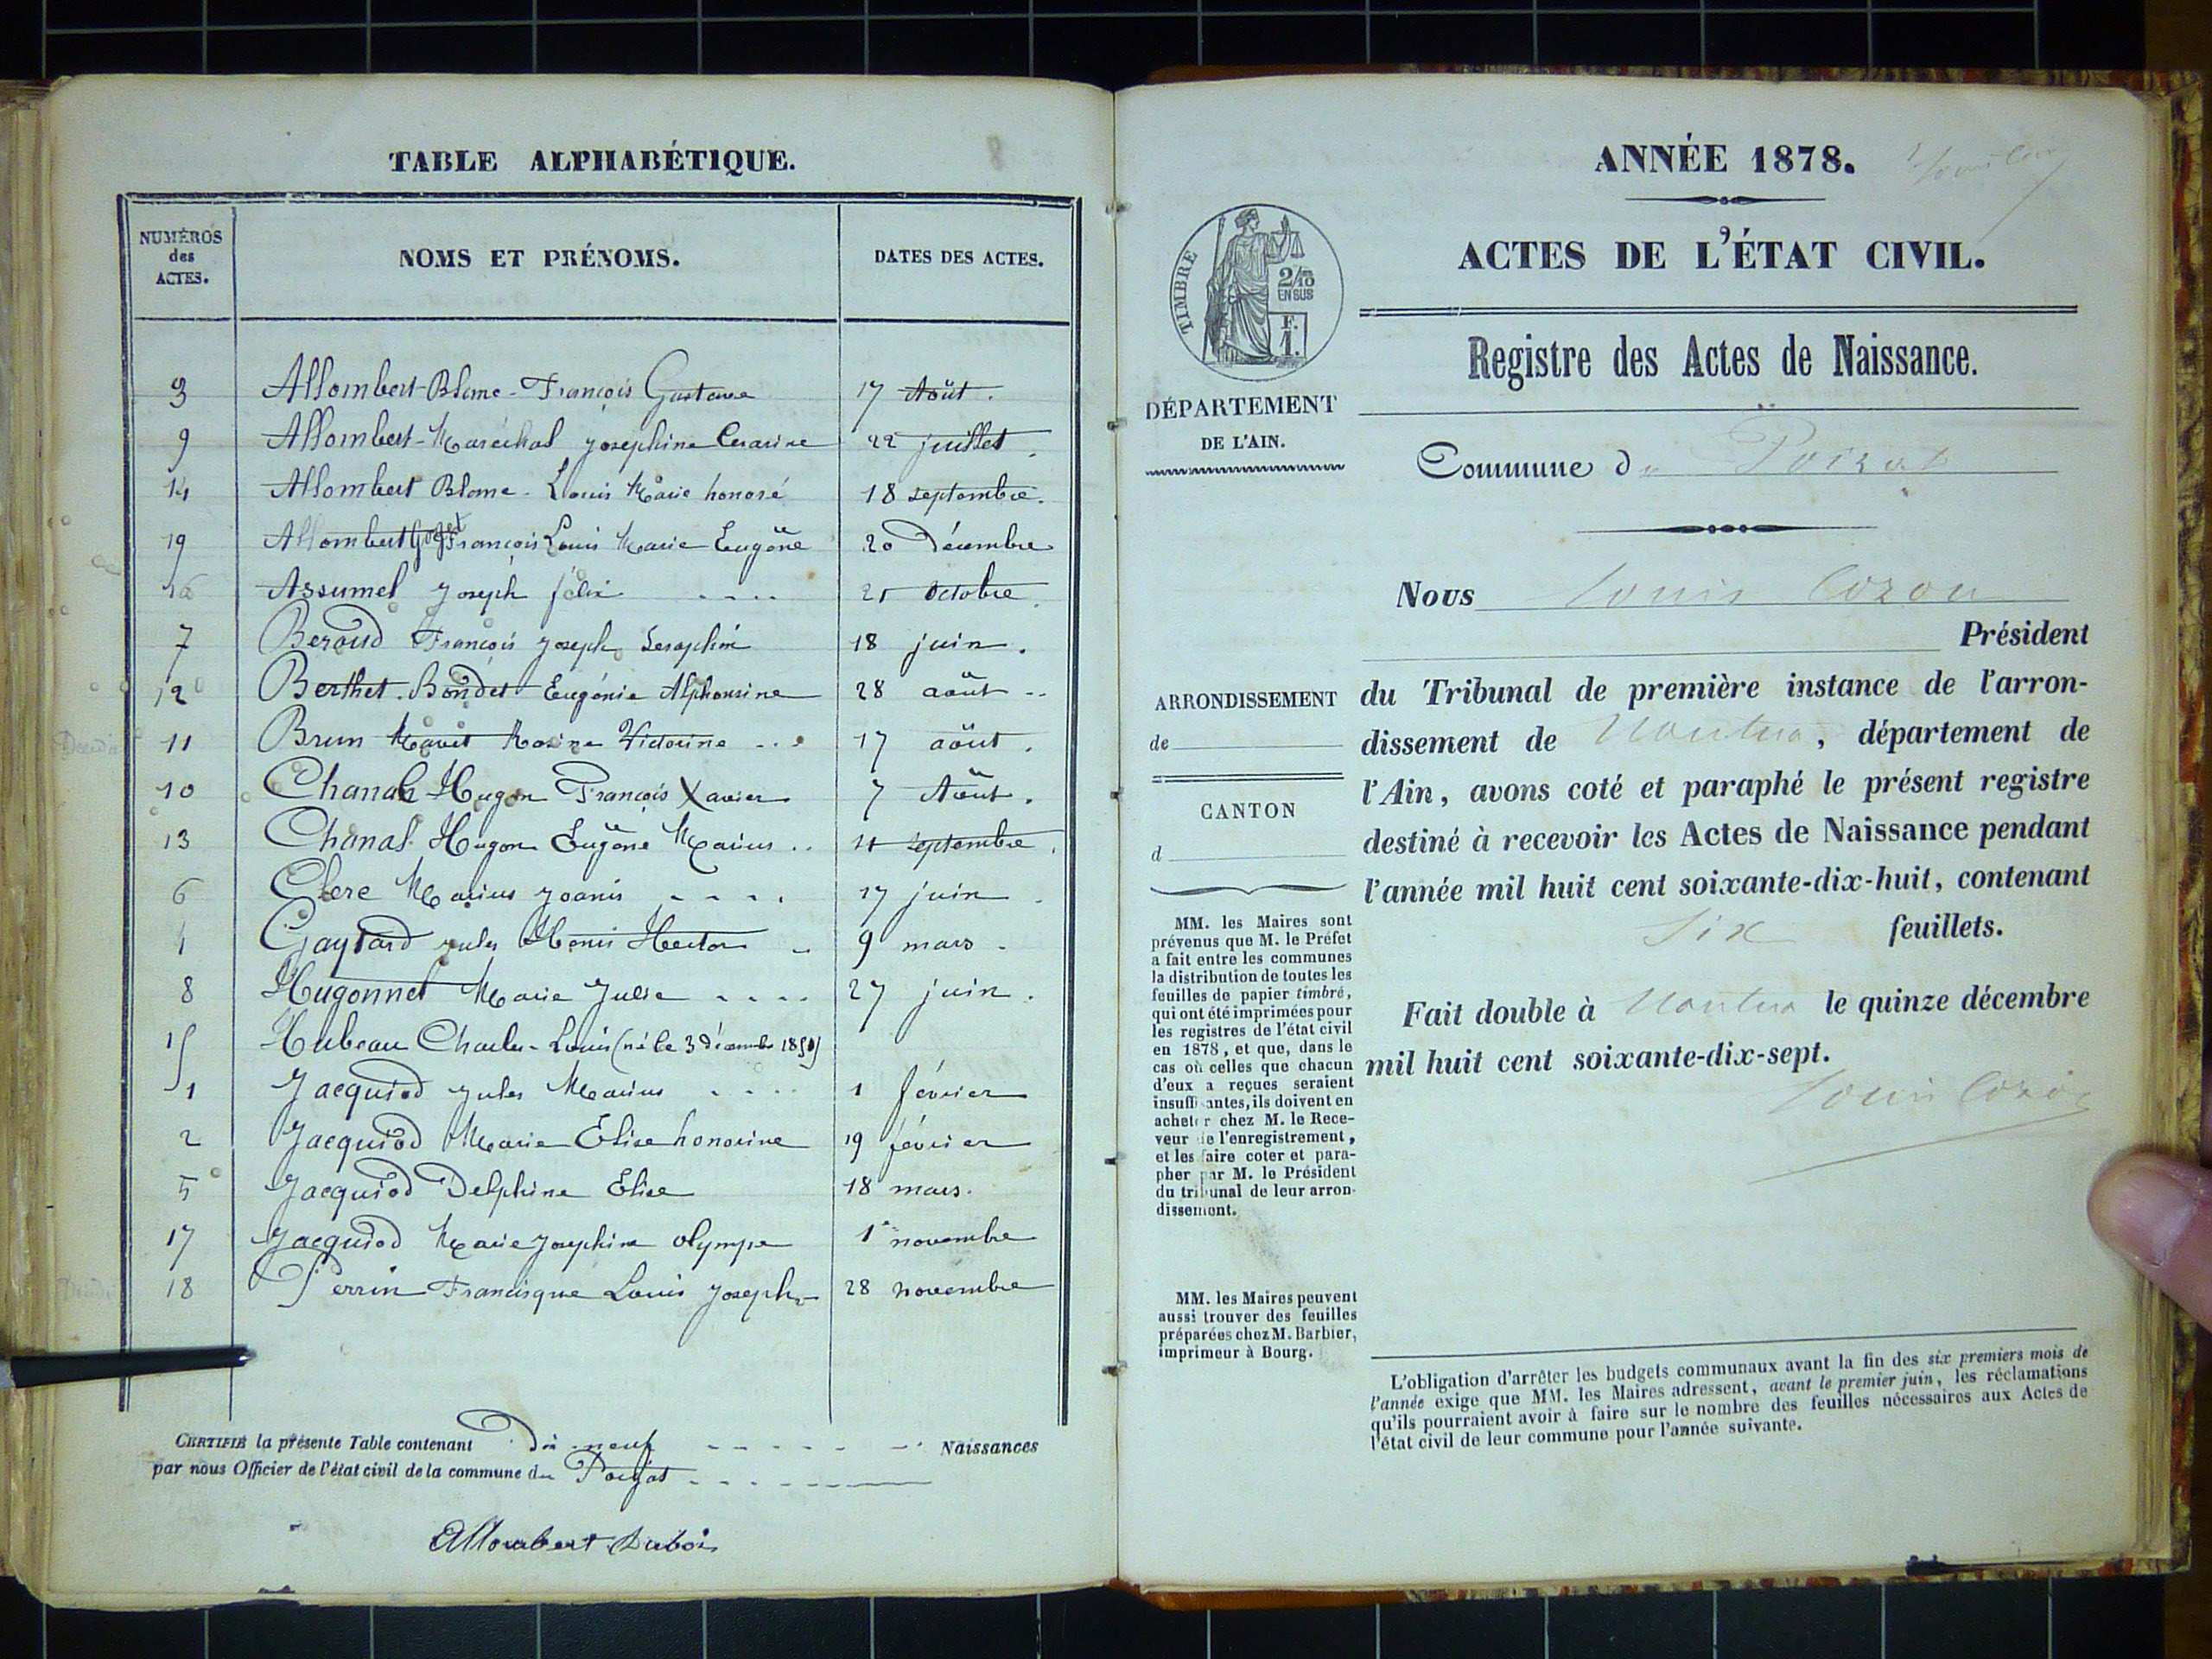 TABLE ALPHABÉTIQUE.
NUMÉROS
des
ACTES.
NOMS ET PRÉNOMS.
DATES DES ACTES.
3 Allombert-Blanc-François Gustave 17 Août.
9 Allombert-Maréchal Joséphine Césarine 22 juillet.
14 Allombert Blanc-Louis Marie honoré 18 septembre.
19 Allombert François Louis Marie Eugène 20 Décembre
16 Assumel Joseph félix .... 21 Octobre.
7 Beroud François Joseph Seraphin 18 juin.
12 Berthet-Bondet Eugénie Alphonsine 28 août --
11 Brun Rosine Victorine ... 17 août.
10 Chanal Hugon François Xavier 7 Août.
13 Chanal Hugon Eugène Marius .. 11 septembre.
6 Clerc Marius Joanis .... 17 juin
4 Jules Henri Hector 9 mars -
8 Hugonnet Marie Julie .... 27 juin.
15 Hubeau Charles-Louis (né le 3 décembre
1 Jacquiod Jules Marius .... 1 février
2 Jacquiod Marie Elise honorine 19 février
5 Jacquiod Delphine Elise 18 mars.
17 Jacquiod Marie Joséphine Olympe 1er novembre
18 Perrin Francisque Louis Joseph 28 novembre
CERTIFIÉ la présente Table contenant Dix-neuf Naissances
par nous Officier de l'état civil de la commune du Poizat
Allombert Dubois
ANNÉE 1878.
Louis Cozon
ACTES DE L'ÉTAT CIVIL.
TIMBRE
2/10
EN SUS
F.
1.
Registre des Actes de Naissance.
DÉPARTEMENT
DE L'AIN.
Commune du Poizat
Nous Louis Cozon
Président
ARRONDISSEMENT
de
CANTON
d
du Tribunal de première instance de l'arron-
dissement de Nantua, département de
l'Ain, avons coté et paraphé le présent registre
destiné à recevoir les Actes de Naissance pendant
l'année mil huit cent soixante-dix-huit, contenant
Six feuillets.
Fait double à Nantua le quinze décembre
mil huit cent soixante-dix-sept.
Louis Cozon
MM. les Maires sont
prévenus que M. le Préfet
a fait entre les communes
la distribution de toutes les
feuilles de papier timbré,
qui ont été imprimées pour
les registres de l'état civil
en 1878, et que, dans le
cas où celles que chacun
d'eux a reçues seraient
insuffisantes, ils doivent en
acheter chez M. le Rece-
veur de l'enregistrement,
et les faire coter et para-
pher par M. le Président
du tribunal de leur arron-
dissement.
MM. les Maires peuvent
aussi trouver des feuilles
préparées chez M. Barbier,
imprimeur à Bourg.
L'obligation d'arrêter les budgets communaux avant la fin des six premiers mois de
l'année exige que MM. les Maires adressent, avant le premier juin, les réclamations
qu'ils pourraient avoir à faire sur le nombre des feuilles nécessaires aux Actes de
l'état civil de leur commune pour l'année suivante.